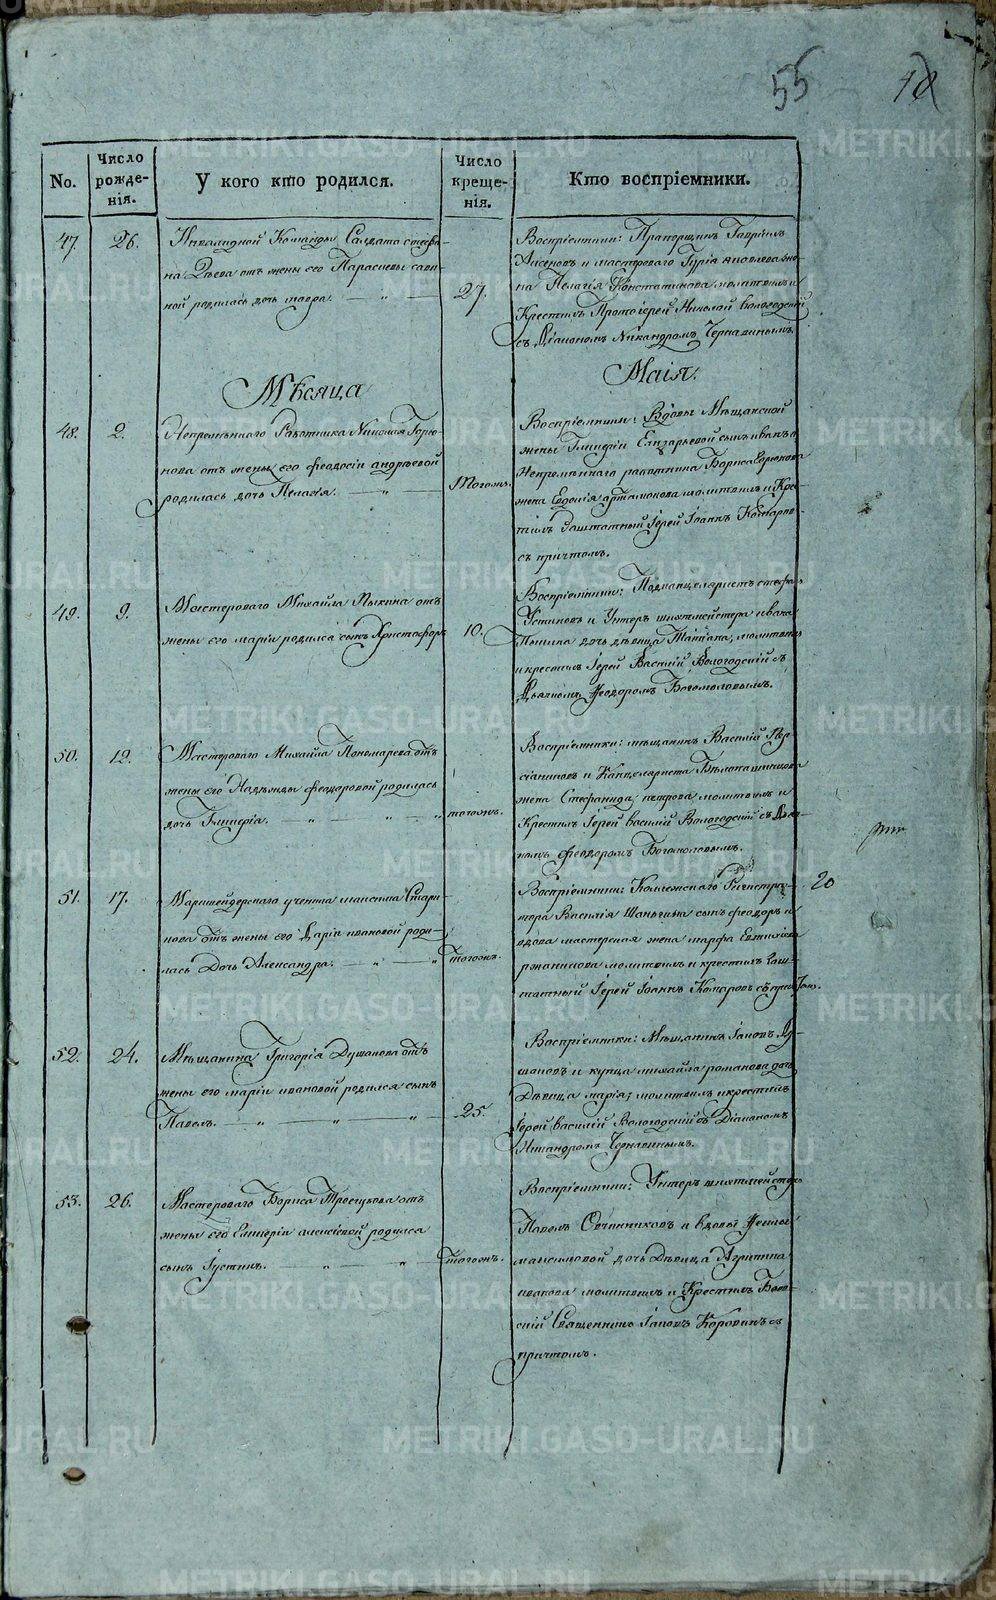 55
No.
Число рожде-нія.
У кого кто родился.
Число креще-нія.
Кто воспріемники.
47.
26.
Инвалидной Команды Солдата Стефа-
на от жены его Парасковьи
родилась дочь
27.
Воспріемники: Прапорщикъ Гавріилъ
и мастероваго Гурія Яковлева же-
на Пелагія Константинова молитвилъ и
Крестилъ Протоіерей Николай Вологодскій
съ Діакономъ Никандромъ Чернавинымъ.
Мѣсяца
Маія.
48.
2.
Непремѣннаго Работника Николая Горю-
нова отъ жены его Феодосіи андрѣевой
родилась дочь Пелагія.
Тогожъ.
Воспріемники: Вдовы Мѣщанской
жены Гликеріи Елизарьевой сынъ иванъ и
Непремѣннаго работника Бориса
жена Евдокія артамонова молитвилъ и Кре-
стилъ Заштатный Іерей Іоаннъ Комаровъ
съ причтомъ.
49.
9.
Мастероваго Михайла Пыкина отъ
жены его маріи родился сынъ Христофоръ
10.
Воспріемники: Подканцеляристъ стефанъ
Устиновъ и Унтеръ шихтмейстера ивана
дочь дѣвица Татіана, молитвилъ
и крестилъ Іерей Василій Вологодскій съ
Дьячкомъ Феодоромъ Богомоловымъ.
50.
12.
Мастероваго Михайла Пономарева отъ
жены его Надежды феодоровой родилась
дочь Гликерія.
тогожъ.
Воспріемники: мѣщанинъ Василій
и Канцеляриста
жена Стефанида петрова молитвилъ и
Крестилъ Іерей василій Вологодскій съ Дья-
комъ феодоромъ Богомоловымъ.
51.
17.
Маркшейдерскаго ученика максима Стари-
кова отъ жены его Даріи ивановой роди-
лась Дочь Александра.
тогожъ.
Воспріемники: Колежскаго Регистра-
тора Василія Шаньгина сынъ феодоръ и
вдова мастерская жена марфа Евтихіева
молитвилъ и крестилъ Заш-
татный Іерей Іоаннъ Комаровъ съ причтом.
20
52.
24.
Мѣщанина Григорія Душанова отъ
жены его маріи ивановой родился сынъ
Павелъ.
25.
Воспріемники: Мѣщанинъ Іаковъ Ду-
шановъ и купца михайла романова дочь
Дѣвица марія; молитвилъ и крестилъ
Іерей василій Вологодскій съ Діакономъ
Никандромъ Чернавинымъ.
53.
26.
Мастероваго Бориса отъ
жены его Гликеріи алексіевой родился
сынъ Іустинъ.
тогожъ.
Воспріемники: Унтеръ шихтмейстеръ
Павелъ Овчинниковъ и вдовы
максимовой дочь Дѣвица Агрипина
иванова молитвилъ и Крестилъ
Священникъ Іаковъ Коровинъ съ
причтомъ.
METRIKI.GASO-URAL.RU